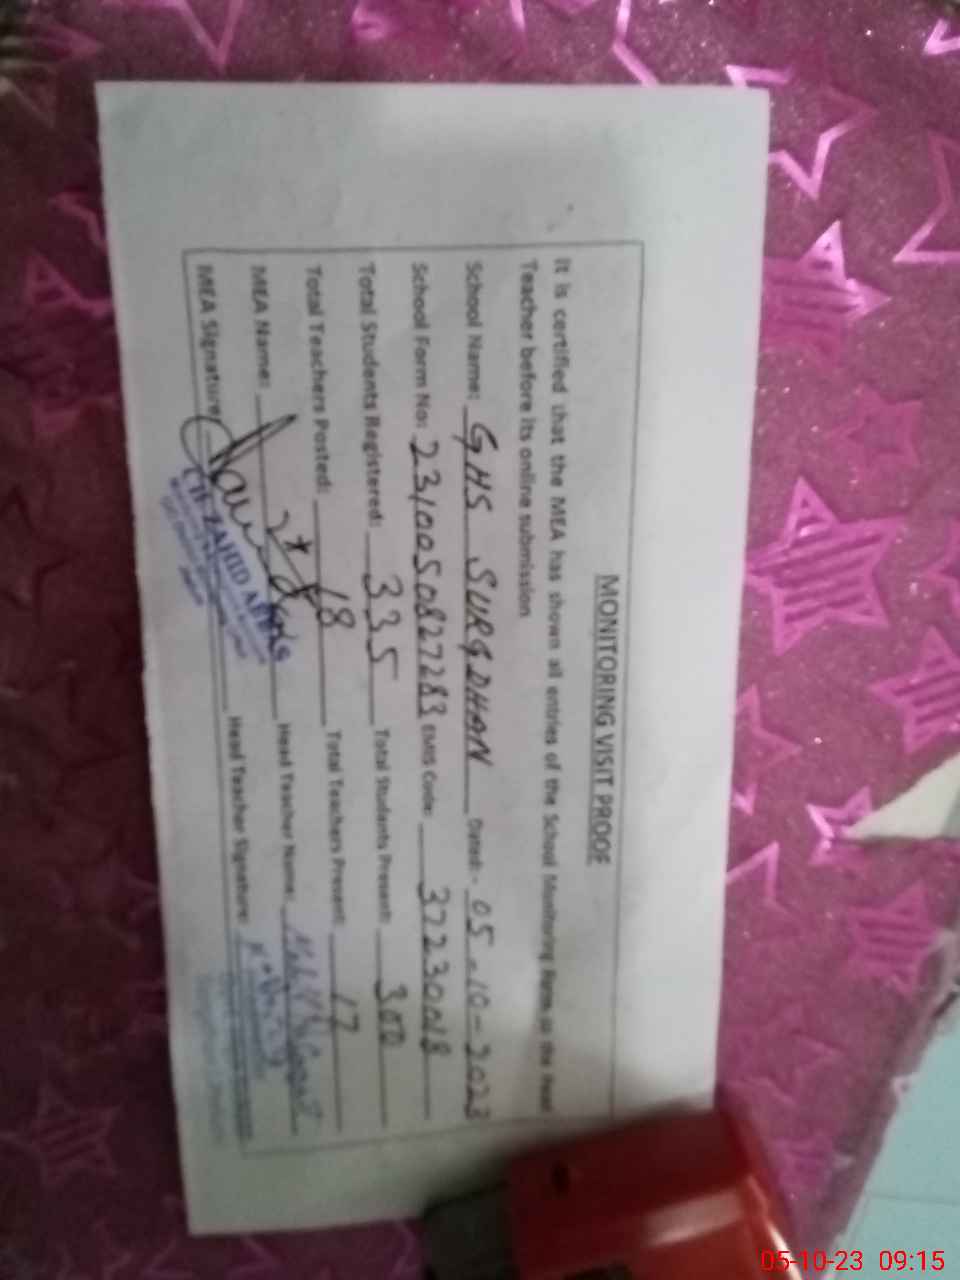 MONITORING VISIT PROOF
It is certified that the MEA has shown all entries of the School Monitoring Form to the Head
Teacher before its online submission
School Name: GHS SURGDHAN Dated:- 05-10-2023
School Form No: 231005082 7283 EMIS Code: 37230018
Total Students Registered: 335 Total Students Present: 300
Total Teachers Posted: 18 Total Teachers Present: 17
MEA Name: Head Teacher Name:
MEA Signature: Head Teacher Signature:
CH ZAHID
05-10-23 09:15